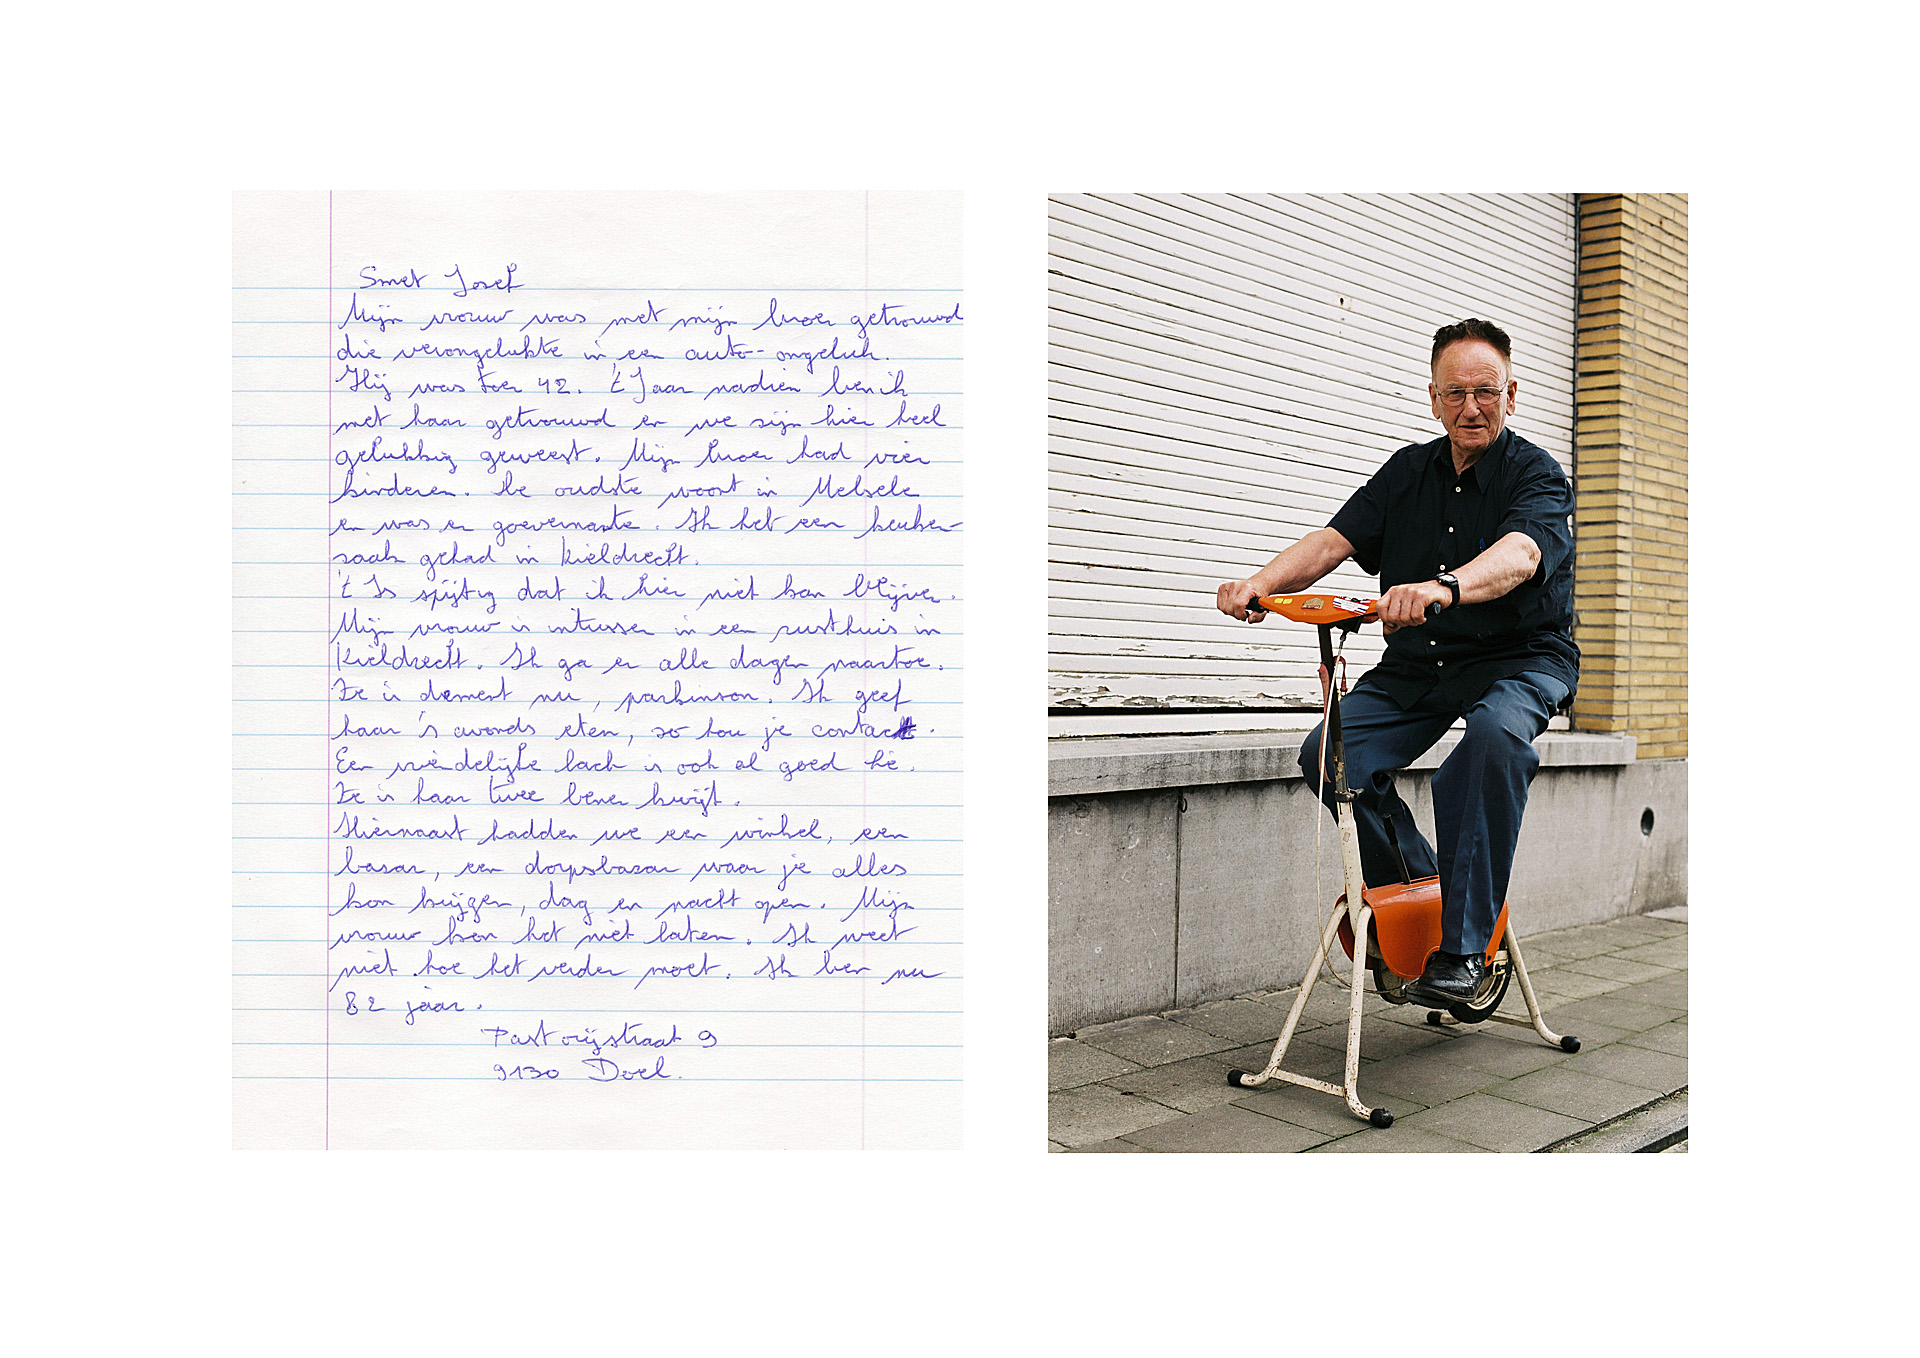 Smet Josef
Mijn vrouw was met mijn broer getrouwd
die verongelukte in een auto-ongeluk.
Hij was toen 42. 't Jaar nadien ben ik
met haar getrouwd en we zijn hier heel
gelukkig geweest. Mijn broer had vier
kinderen. De oudste woont in Melsele
en was er goevernante. Ik heb een keuken-
zaak gehad in Kieldrecht.
't Is spijtig dat ik hier niet kan blijven.
Mijn vrouw is intussen in een rusthuis in
Kieldrecht. Ik ga er alle dagen naartoe.
Ze is dement nu, parkinson. Ik geef
haar 's avonds eten, zo hou je contact.
Een vriendelijke lach is ook al goed hé.
Ze is haar twee benen kwijt.
Hiernaast hadden we een winkel, een
bazar, een dorpsbazar waar je alles
kon krijgen, dag en nacht open. Mijn
vrouw kon het niet laten. Ik weet
niet hoe het verder moet. Ik ben nu
82 jaar.
Pastorijstraat 9
9130 Doel.